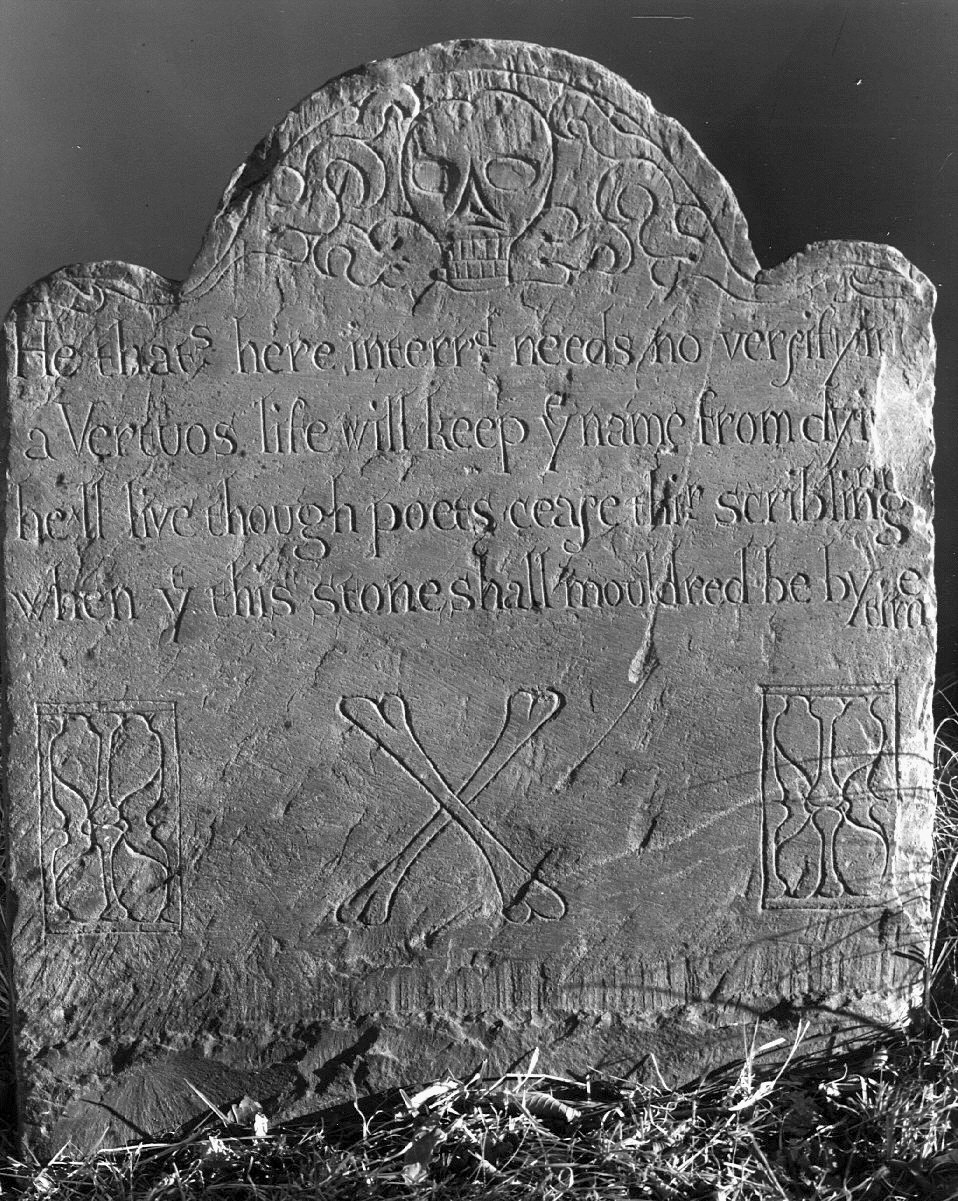 He that's here interr'd needs no verſifyin
a Vertuos life will keep yᵉ name from dyin
he'll live though poets ceaſe thir scribling rime
when yᵗ this stone shall mouldred be by time